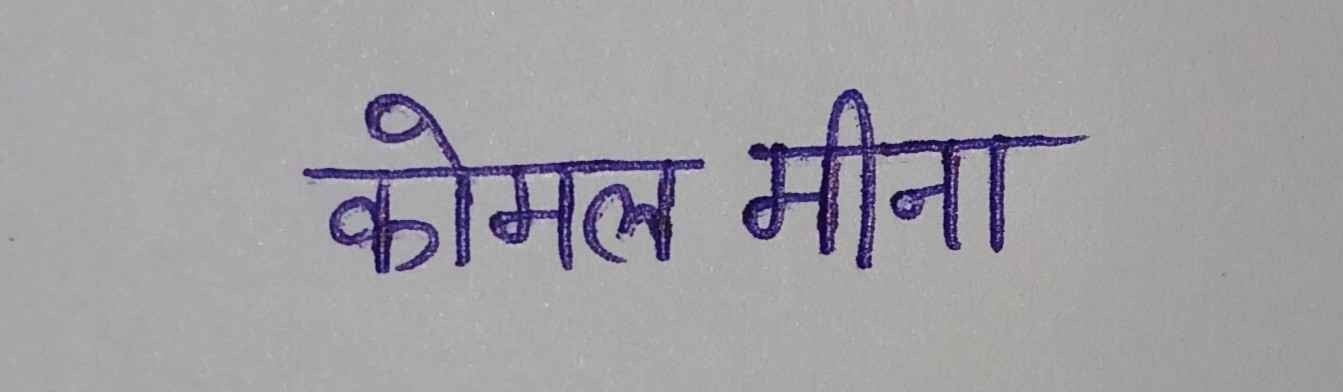 कोमल मीना